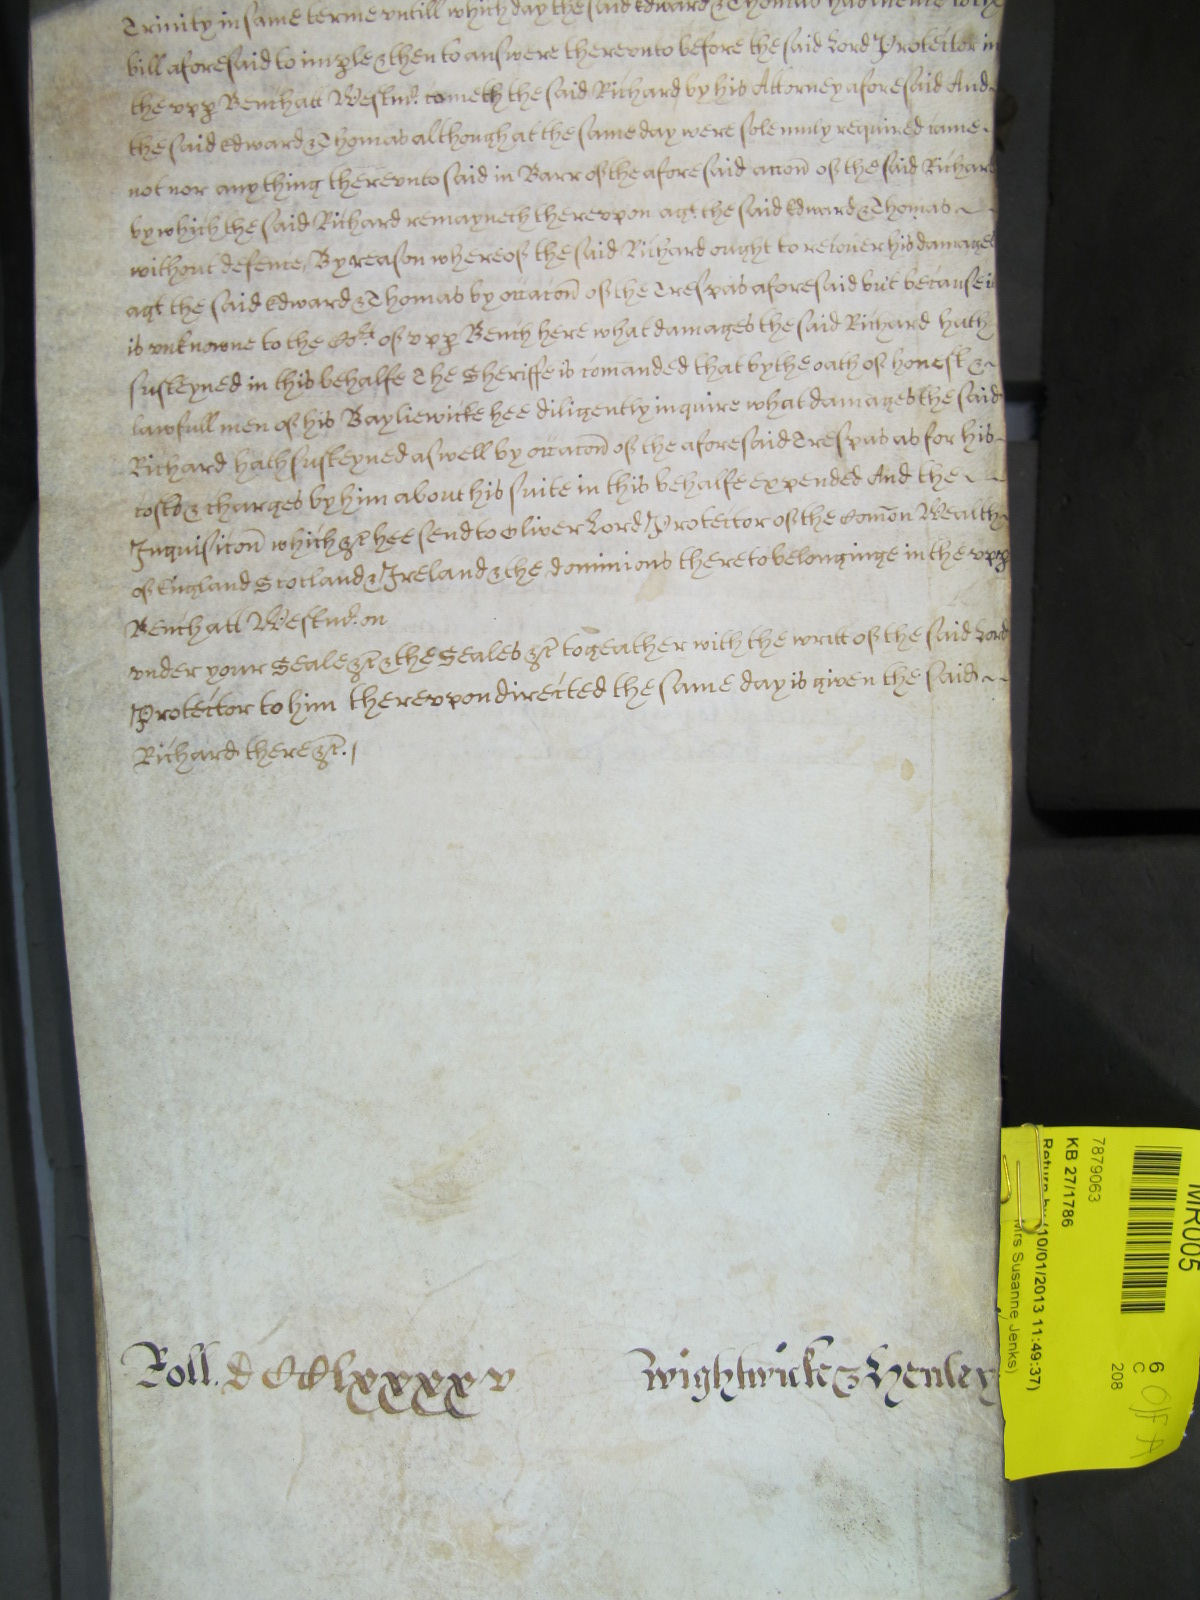 Trinity in same terme untill which day the said Edward & Thomas had
bill aforesaid to imple & then to answere thereunto before the said Lord Protector in
the upp Bench att Westmr. cometh the said Richard by his Attorney aforesaid And
the said Edward & Thomas although at the same day were solemnly required came
not nor any thing thereunto said in Barr of the aforesaid accon of the said Richard
by which the said Richard remayneth thereupon agt. the said Edward & Thomas
without defence, By reason whereof the said Richard ought to recover his damages
agt the said Edward & Thomas by occacon of the Trespas aforesaid but because it
is unknowne to the Cort of upp Bench here what damages the said Richard hath
susteyned in this behalfe The Sheriffe is comanded that by the oath of honest &
lawfull men of his Bayliewicke hee diligently inquire what damages the said
Richard hath susteyned aswell by occacon of the aforesaid Trespas as for his
costs & charges by him about his suite in this behalfe expended And the
Inquisicon which &c hee send to Oliver Lord Protector of the Comon Wealth
of England Scotland & Ireland & the dominions thereto belonginge in the upp
Bench att Westmr. on
under your Seale &c & the Seales &c togeather with the writt of the said Lord
Protector to him thereupon directed the same day is given the said
Richard there &c.
Roll. d CClxxxxv
Wightwicke & Henley
MR005
7879063
KB 27/1786
Return by (10/01/2013 11:49:37)
Mrs Susanne Jenks)
6
C
208